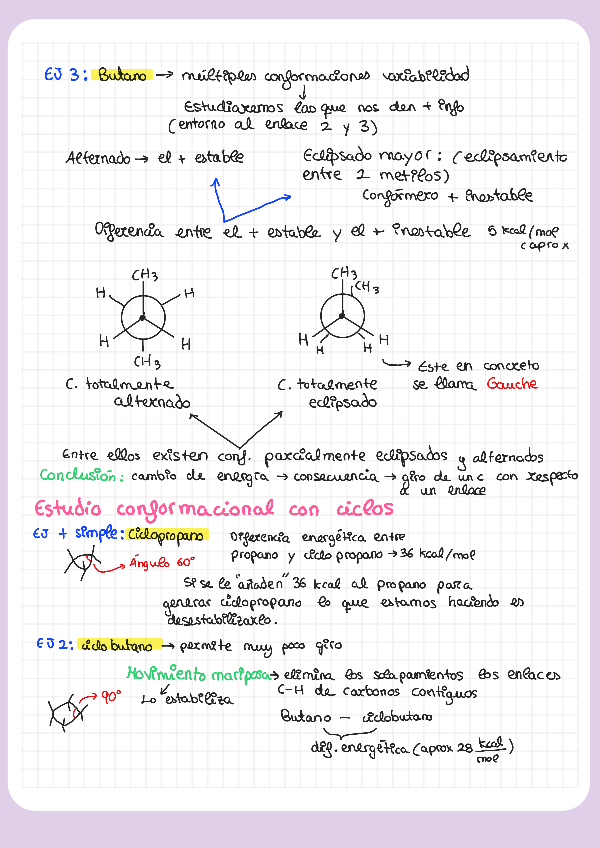 EJ 3: Butano → múltiples conformaciones variabilidad
Estudiaremos las que nos den + info
(entorno al enlace 2 y 3)
Alternado → el + estable
Eclipsado mayor: (eclipsamiento
entre 2 metilos)
Confórmero + inestable
Diferencia entre el + estable y el + inestable 5 kcal/mol
(aprox
CH3
H H
H H
CH3
C. totalmente
alternado
CH3
CH3
H H
H H
C. totalmente
eclipsado
Este en concreto
se llama Gauche
Entre ellos existen conf. parcialmente eclipsados y alternados
Conclusión: cambio de energía → consecuencia → giro de un c con respecto
a un enlace
Estudio conformacional con ciclos
EJ + simple: Ciclopropano
Ángulo 60°
Diferencia energética entre
propano y ciclo propano → 36 kcal/mol
Si se le "añaden" 36 kcal al propano para
generar ciclopropano lo que estamos haciendo es
desestabilizarlo.
EJ 2: ciclobutano → permite muy poco giro
Movimiento mariposa → elimina los solapamientos los enlaces
C-H de carbonos contiguos
Lo estabiliza
90°
Butano - ciclobutano
dif. energética (aprox 28 kcal/mol)